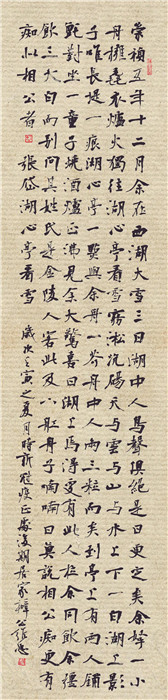 崇禎五年十二月余在西湖大雪三日湖中人鳥聲俱絕是日更定余拏一小
舟擁毳衣爐火獨往湖心亭看雪霧凇沆碭天與雲與山與水上下一白湖上影
子唯長堤一痕湖心亭一點與余舟一芥舟中人兩三粒而已到亭上有兩人鋪
氈對坐一童子燒酒爐正沸見余大驚喜曰湖上焉得更有此人拉余同飲余強
飲三大白而別問其姓氏是金陵人客此及下船舟子喃喃曰莫說相公痴更有
痴似相公者 張岱湖心亭看雪 歲次
寅之夏月時